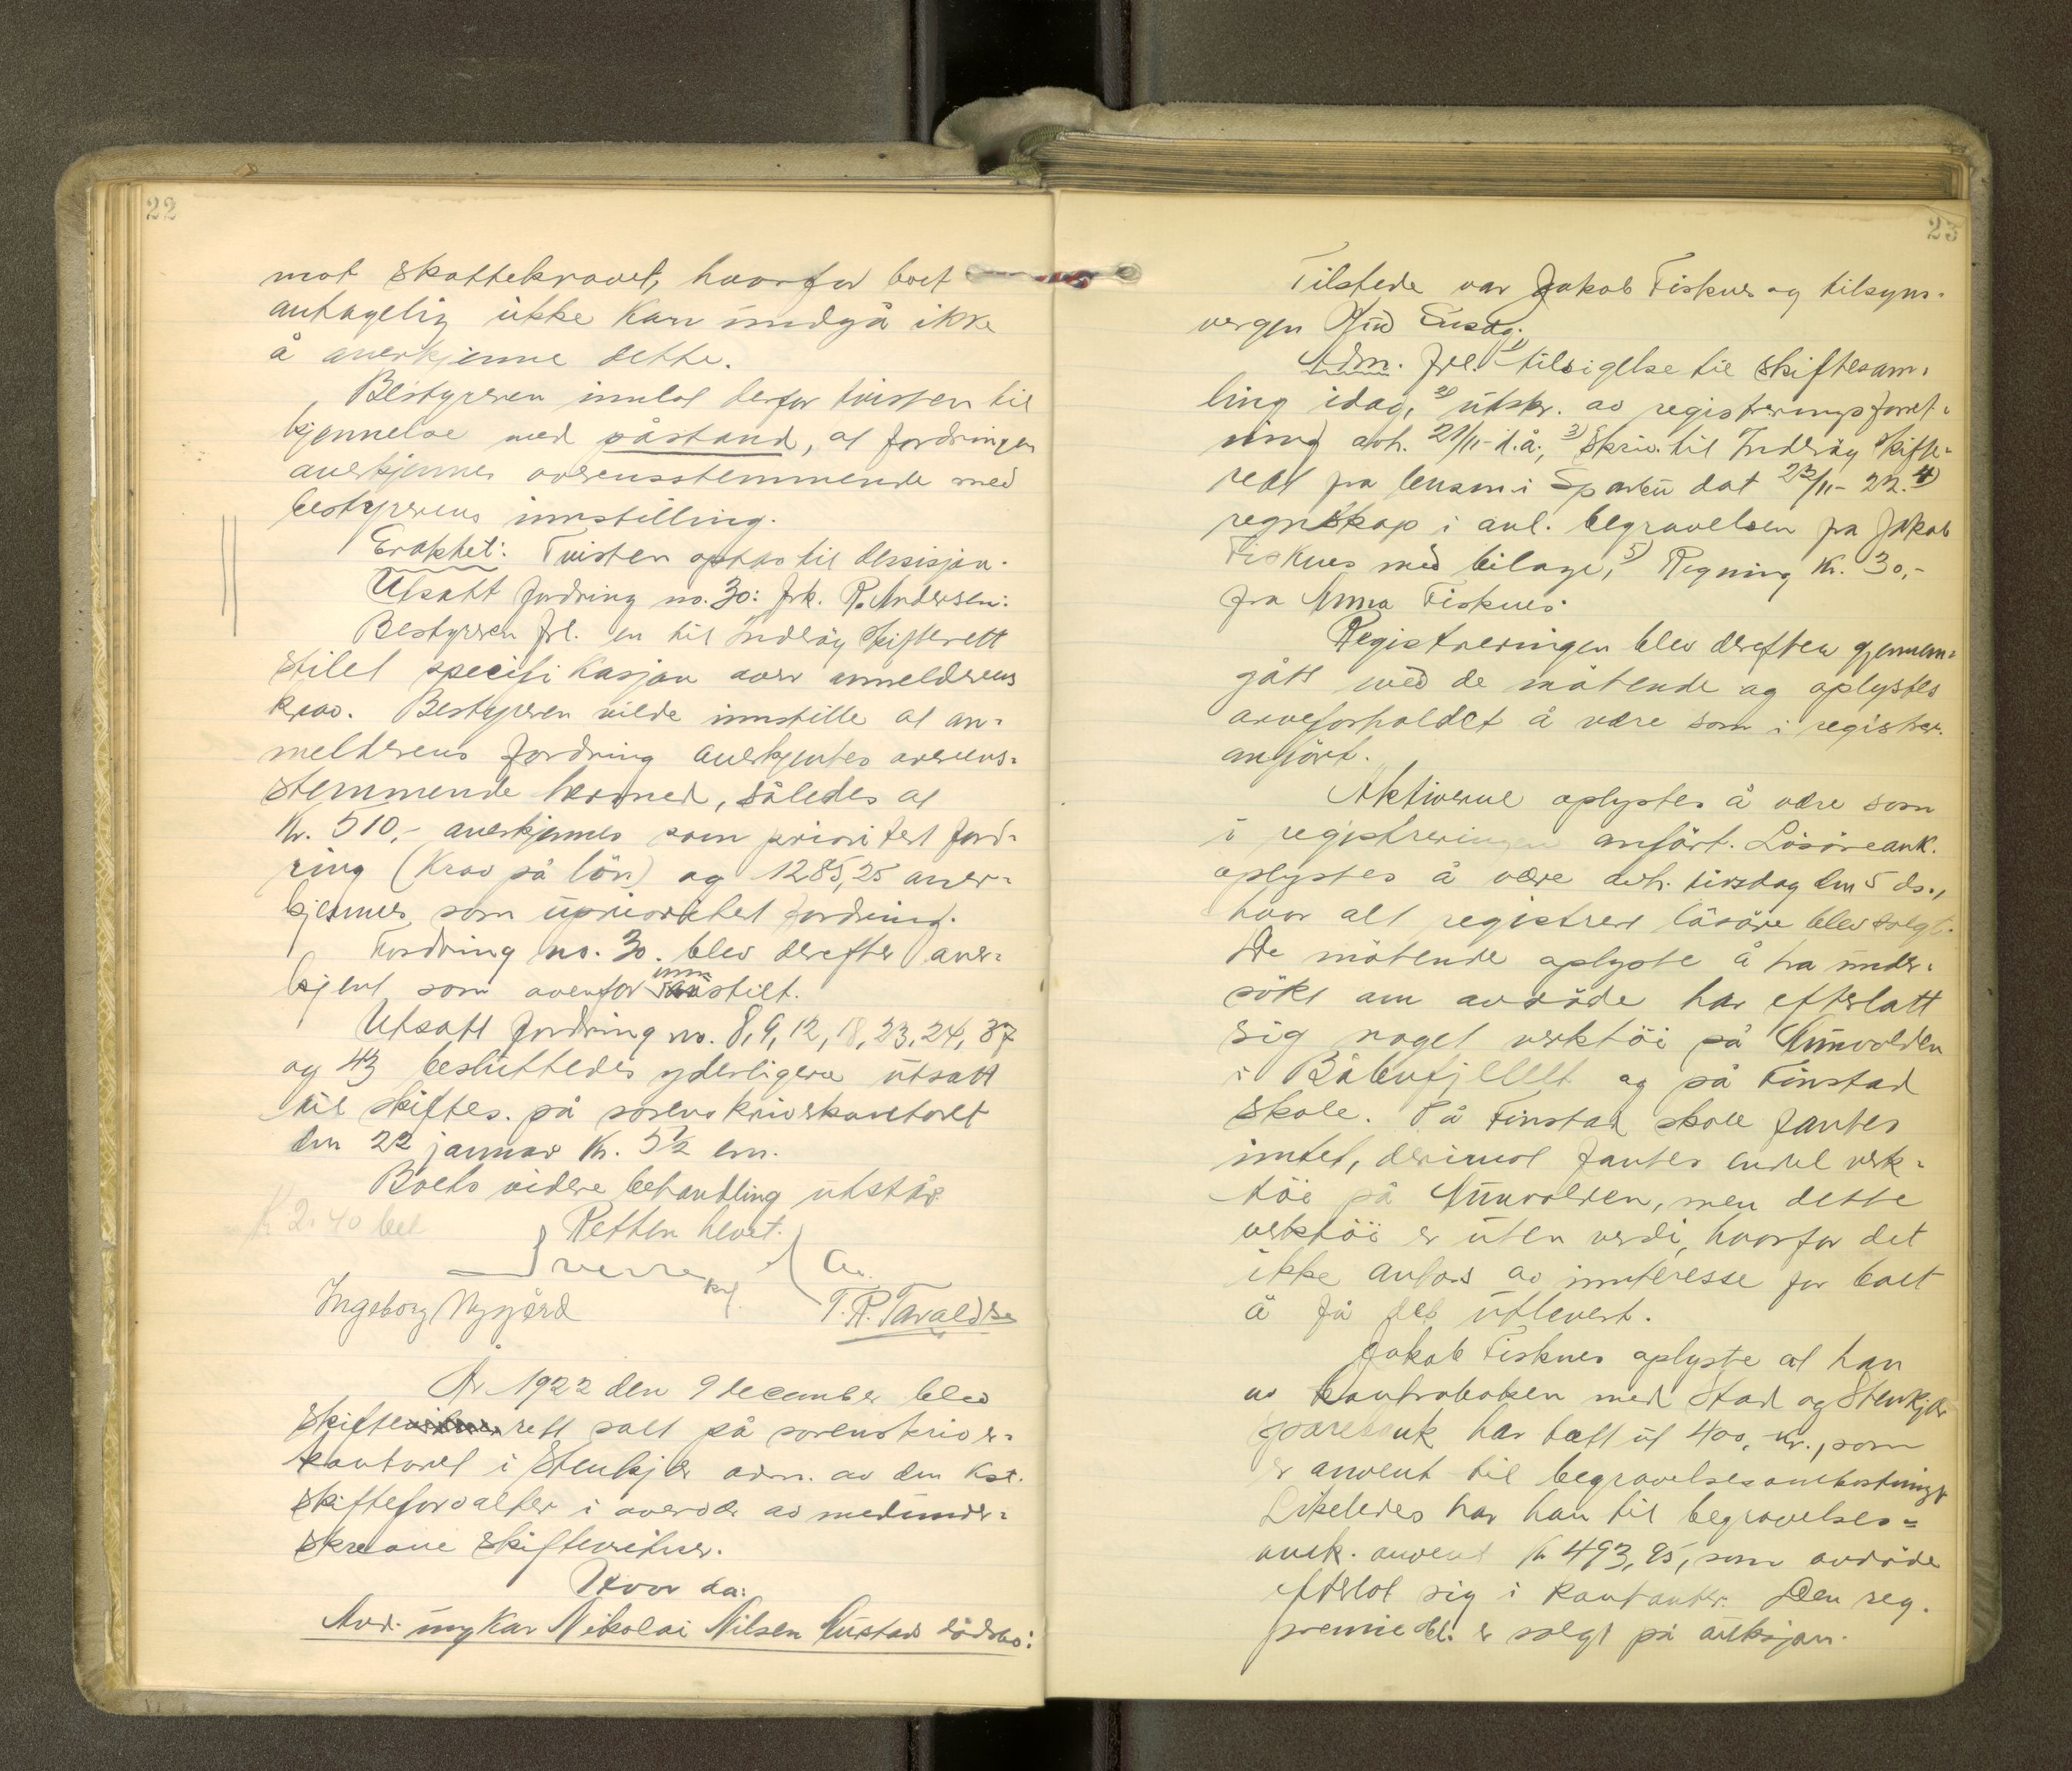 22
mot skattekravet, hvorfor boet
antagelig ikke kan undgå ikke
å anerkjenne dette.
Bestyreren innlot derfor tvisten til
kjennelse med påstand, at fordringen
anerkjennes overensstemmende med
bestyrerens innstilling.
Eraktet: Tvisten optas til dessisjon.
Utsatt fordring no. 30: frk. R. Andersen:
Bestyreren frl. en til Inderöy skifterett
stilet specifikasjon over anmelderens
krav. Bestyreren vilde innstille at an-
melderens fordring anerkjentes overens-
stemmende hermed, således at
Kr. 510,- anerkjennes som prioritert ford-
ring (Krav på lön) og 1285,25 aner-
kjennes som uprioritet fordring.
Fordring no. 30. blev derefter aner-
kjent som ovenfor innstilt.
Utsatt fordring no. 8, 9, 12, 18, 23, 24, 37
og 43 besluttedes yderligere utsatt
til skiftes. på sorenskriverkontoret
den 22 januar kl. 5½ em.
Boets videre behandling utstår
K 2.40 bet
Retten hevet.
Ingeborg Nygård
T. R. Tavaldsen
År 1922 den 9 december blev
skifterett satt på sorenskriver-
kontoret i Stenkjær adm. av den kst.
skifteforvalter i overvær av medunder-
skrevne skiftevitner.
Hvor da:
Avd. ungkar Nikolai Nilsen Gustads dödsbo:
23
Tilstede var Jakob Fisknes og tilsyns-
vergen
Adm. frl. 1) tilsigelse til skiftesam-
ling idag, 2) utskr. av registreringsforret-
ning avh. 21/11 d.å., 3) Skriv. til Inderöy skifte-
rett fra lensm. i Sparbu dat 22/11-22. 4)
regnskap i anl. begravelsen fra Jakob
Fisknes med bilage, 5) Regning kr. 30,-
fra Anna Fisknes.
Registreringen blev derefter gjennem-
gått med de mötende og oplystes
arveforholdet å være som i registrer.
anfört.
Aktiverne oplystes å være som
i registreringen anfört. Lösöreauk.
oplystes å være avh. tirsdag den 5 ds.,
hvor alt registrert lösöre blev solgt.
De mötende oplyste å ha under-
sökt om avdöde har efterlatt
sig noget verktöi på
i Båbufjellet og på Finstad
skole. På Finstad skole fantes
intet, derimot fantes endel verk-
töi på, men dette
verktöi er uten verdi, hvorfor det
ikke antas av innteresse for boet
å få det utlevert.
Jakob Fisknes oplyste at han
av kontraboken med Stod og Stenkjær
sparebank har tatt ut 400,- kr., som
er anvent til begravelsesomkostninger
Likeledes har han til begravelses-
omk. anvent kr 493,95, som avdöde
efterlot sig i kontanter. Den reg.
premieobl. er solgt på auksjon.